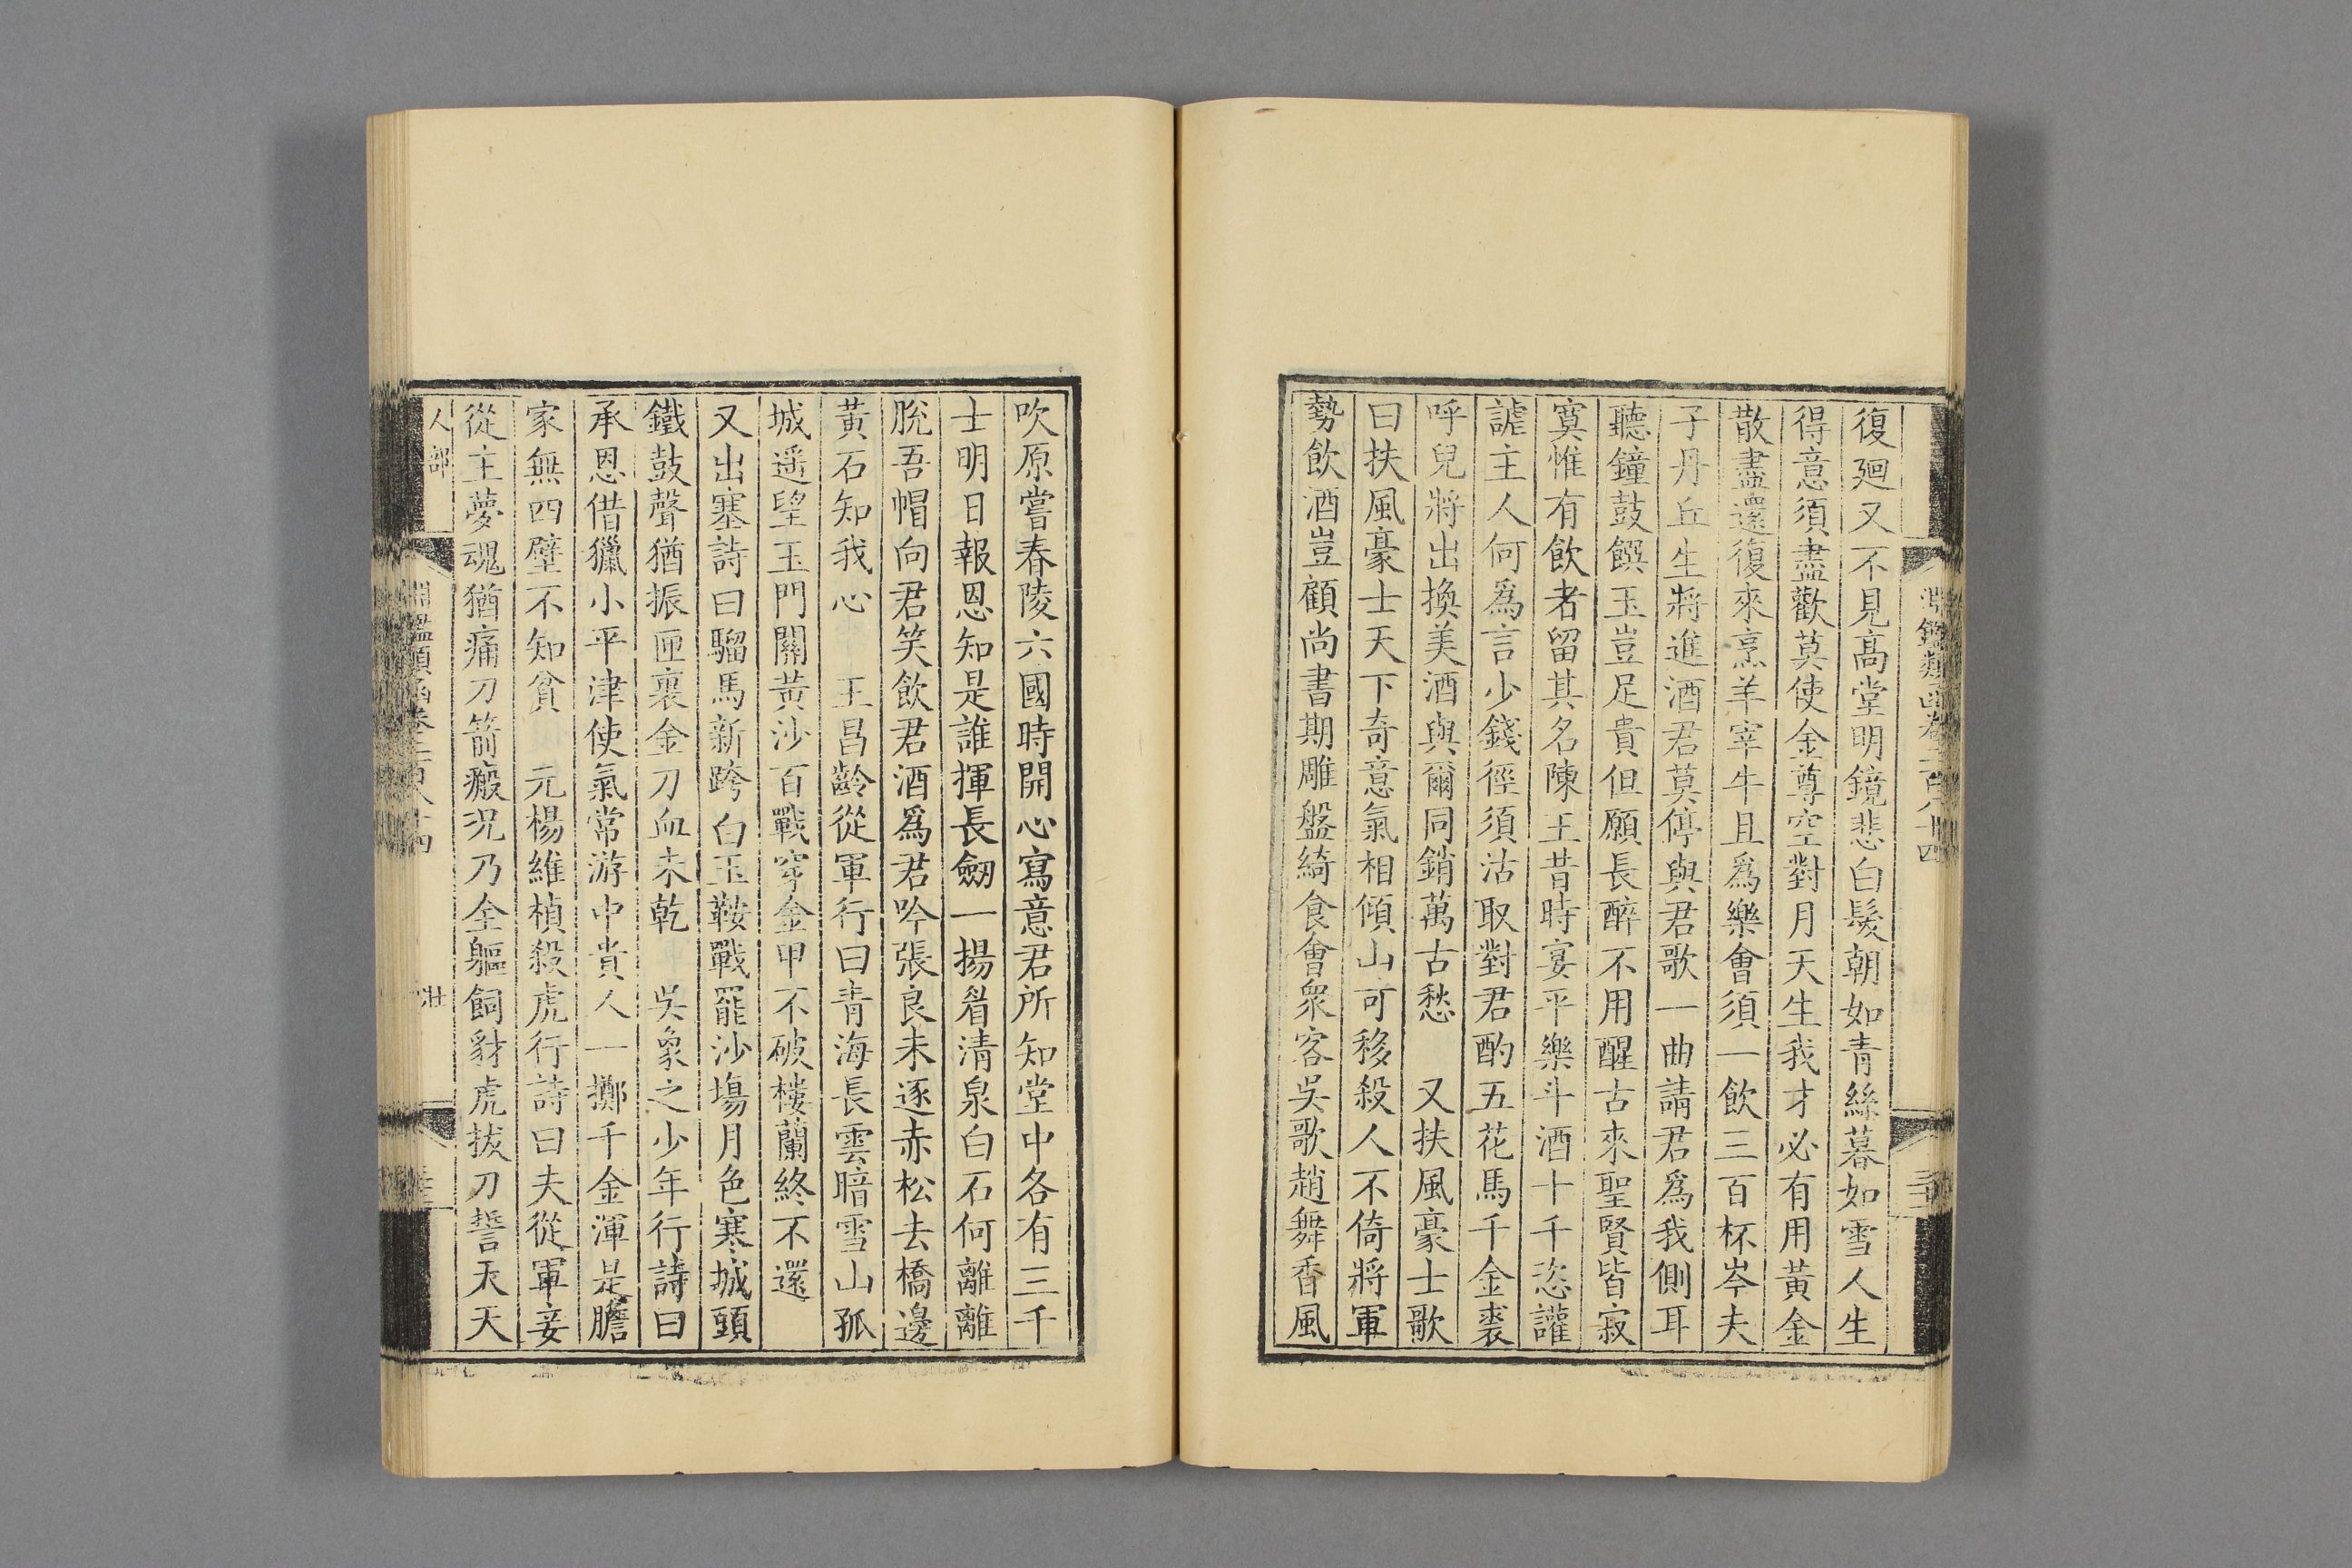 復廻又不見高堂明鏡悲白髮朝如青絲暮如雪人生
得意須盡歡莫使金尊空對月天生我才必有用黃金
散盡還復來烹羊宰牛且爲樂會須一飲三百杯岑夫
子丹丘生將進酒君莫停與君歌一曲請君爲我側耳
聽鐘鼓饌玉豈足貴但願長醉不用醒古來聖賢皆寂
寞惟有飲者留其名陳王昔時宴平樂斗酒十千恣讙
謔主人何爲言少錢徑須沽取對君酌五花馬千金裘
呼兒將出換美酒與爾同銷萬古愁 又扶風豪士歌
曰扶風豪士天下奇意氣相傾山可移殺人不倚將軍
勢飲酒豈顧尚書期雕盤綺食會衆客吳歌趙舞香風
吹原嘗春陵六國時開心寫意君所知堂中各有三千
士明日報恩知是誰揮長劒一揚眉清泉白石何離離
脫吾帽向君笑飲君酒爲君吟張良未逐赤松去橋邊
黃石知我心 王昌齡從軍行曰青海長雲暗雪山孤
城遥望玉門關黃沙百戰穿金甲不破樓蘭終不還
又出塞詩曰騮馬新跨白玉鞍戰罷沙塲月色寒城頭
鐵鼓聲猶振匣裏金刀血未乾 吳象之少年行詩曰
承恩借獵小平津使氣常游中貴人一擲千金渾是膽
家無四壁不知貧 元楊維楨殺虎行詩曰夫從軍妾
從主夢魂猶痛刀箭瘢況乃全軀飼豺虎拔刀誓天天
人部
淵鑑類函卷二百八十四
壯